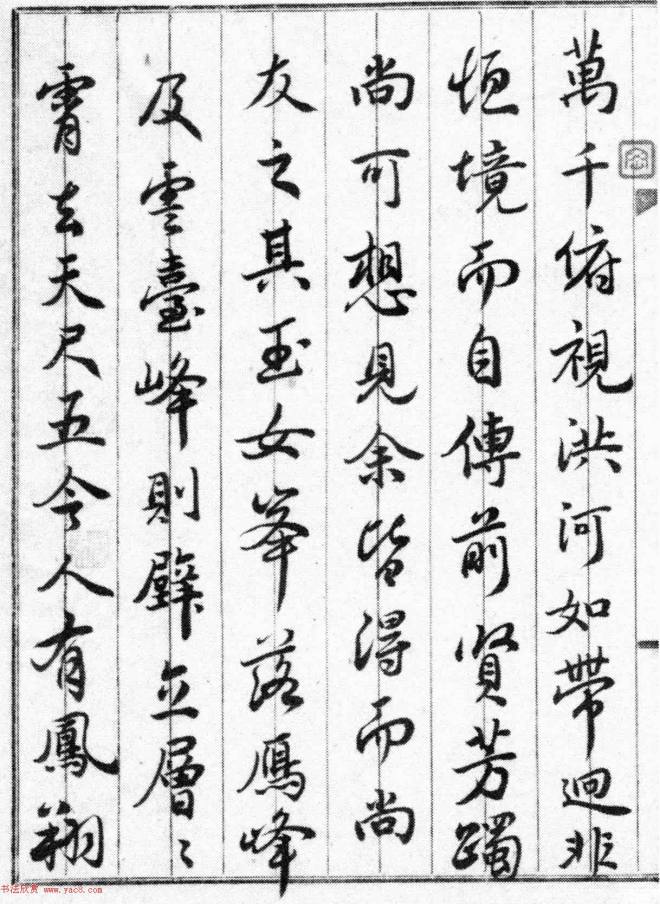 萬千俯視洪河如帶迥非
恒境而自傳前賢芳躅
尚可想見余皆得而尚
友之其玉女峯落雁峰
及雲臺峰則壁立層〻
霄去天尺五令人有鳳翔
书法欣赏 www.yac8.com